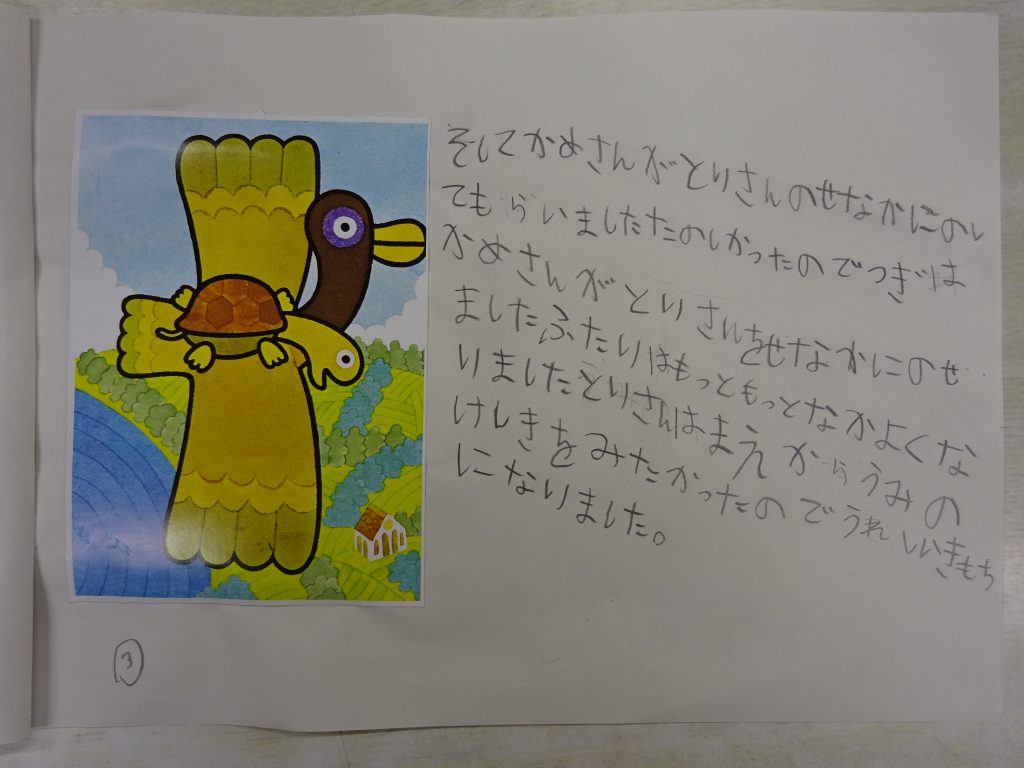 そしてかめさんがとりさんのせなかにのし
てもらいましたたのしかったのでつぎは
かめさんがとりさんをせなかにのせ
ましたふたりはもっともっとなかよくな
りましたとりさんはまえからうみの
けしきをみたかったのでうれしいきもち
になりました。
3